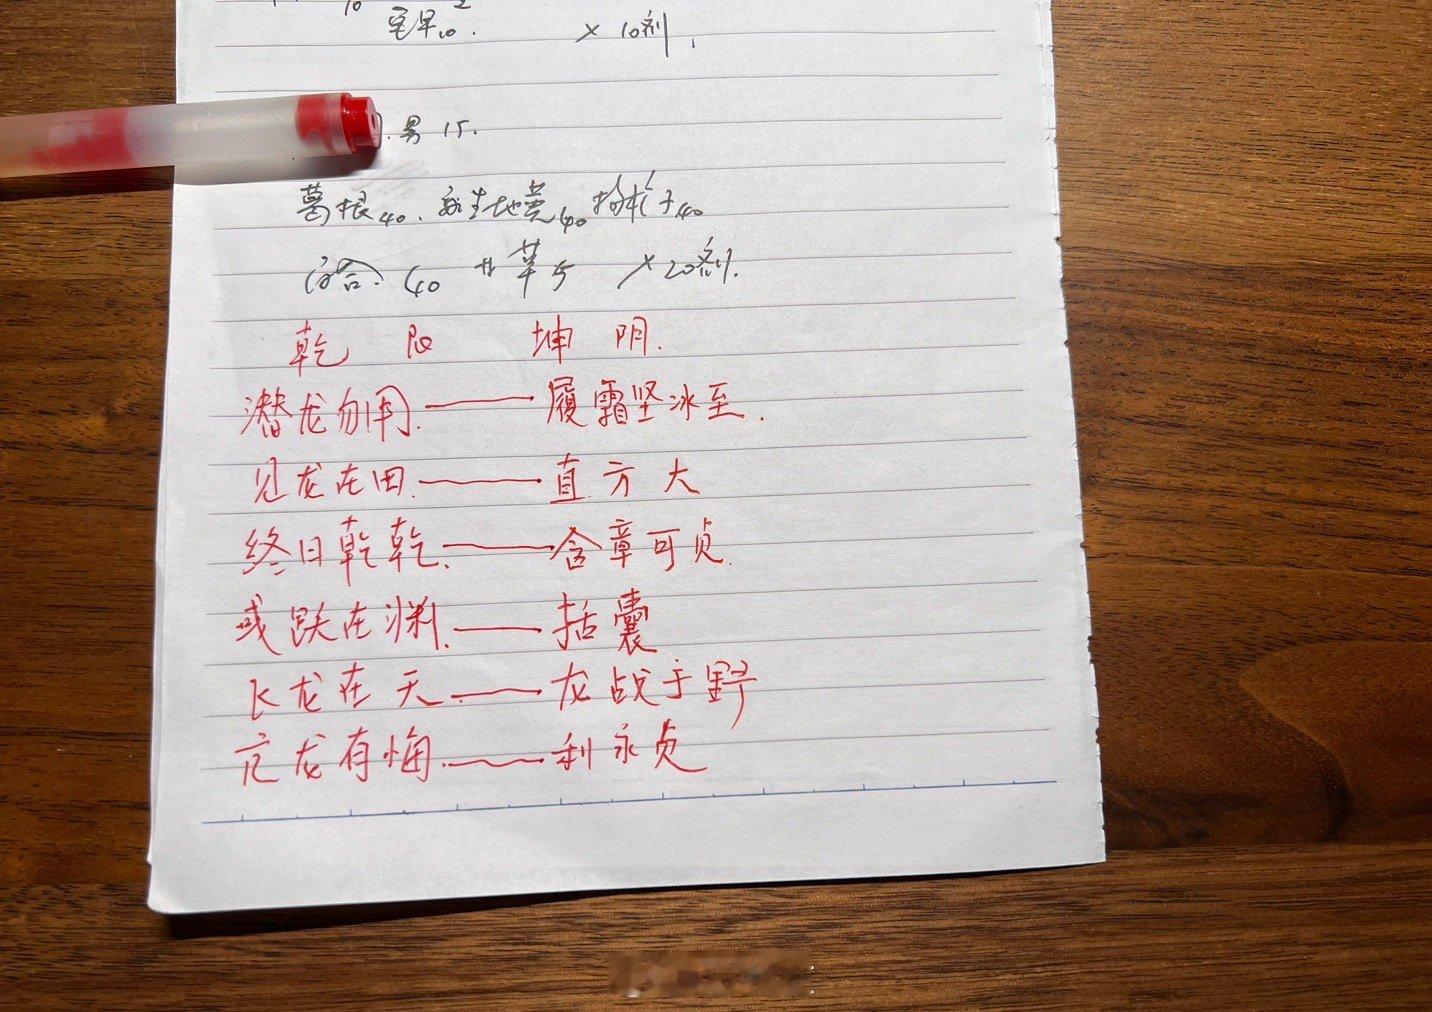 10 2
10. × 10剂.
男 15.
葛根40. 新生地黄40 枸杞子40
百合 40 甘草5 ×20剂.
乾 阳 坤 阴.
潜龙勿用. 履霜坚冰至.
见龙在田. 直方大
终日乾乾. 含章可贞.
或跃在渊. 括囊
飞龙在天. 龙战于野
亢龙有悔. 利永贞